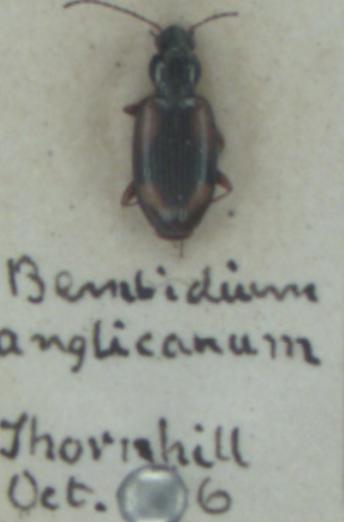 Bembidium
anglicanum
Thornhill
Oct. 6